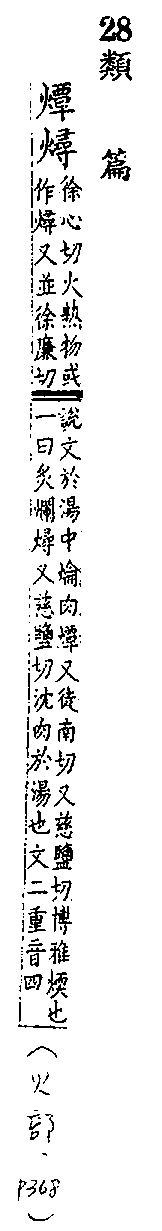 28類篇
燂燖徐心切火熱物或
作燖又並徐廉切
說文於湯中爚肉燂又徒南切又慈鹽切博雅煗也
一曰炙爛燖又慈鹽切沈肉於湯也文二重音四
(火部、P368)